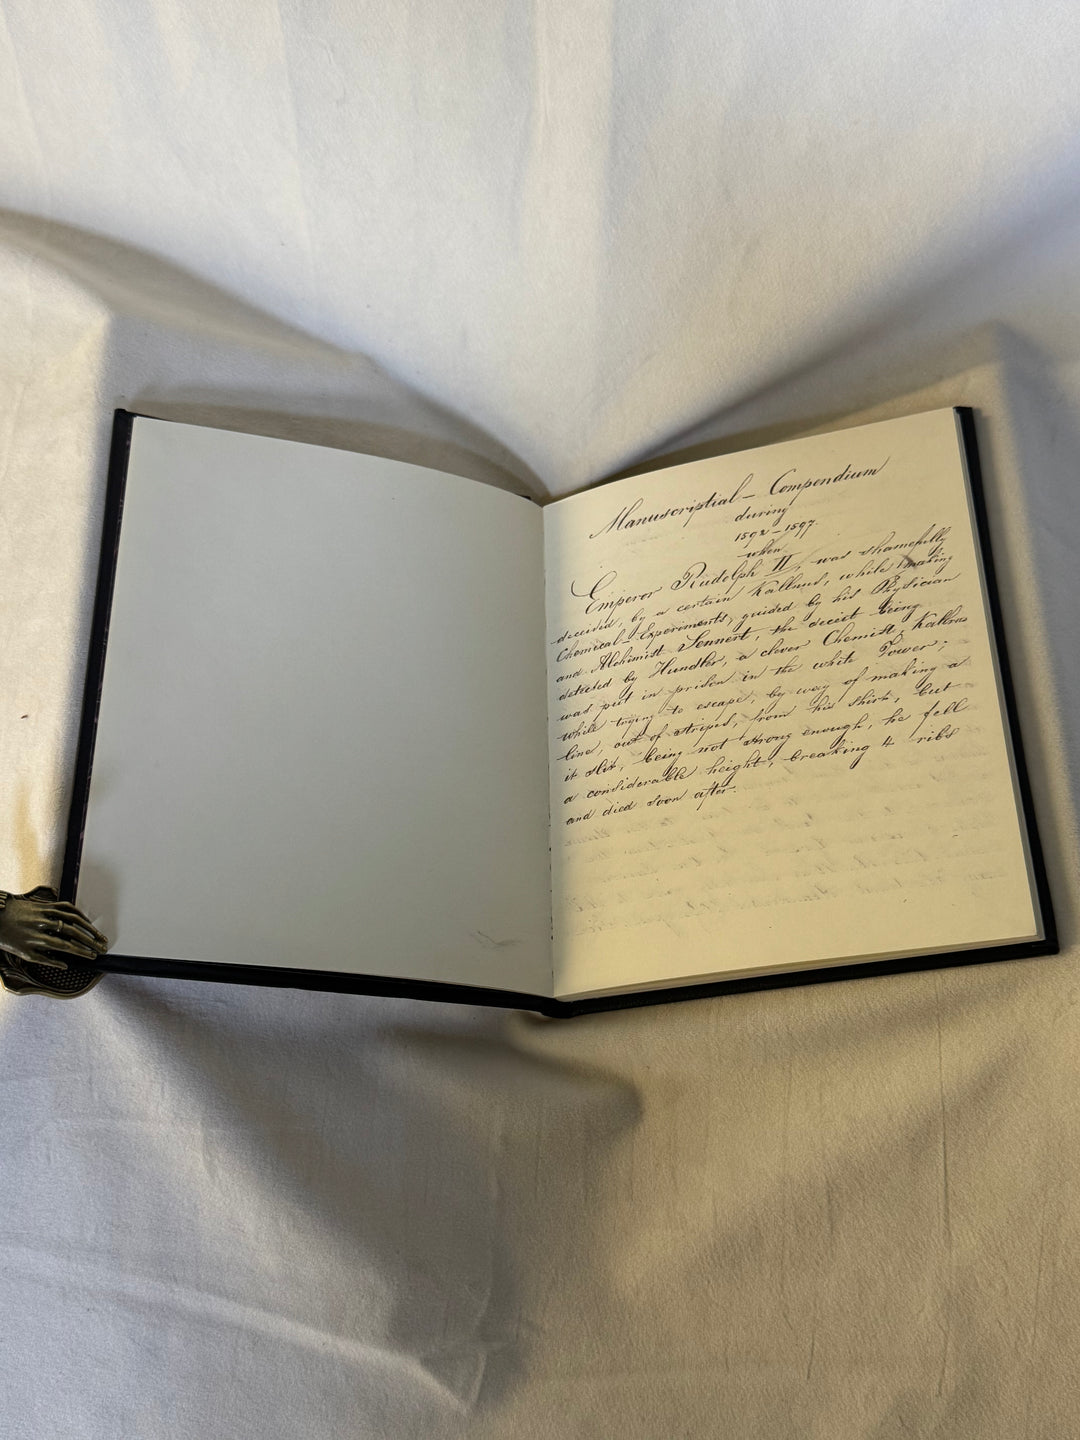 Manuscriptial - Compendium
during
1592 - 1597.
when
Emperor Rudolph II, was shamefully
deceided, by a certain Kallaus, while making
Chemical-Experiments, guided by his Physician
and Alchimist Sennert, the deceit being
detected by Hundler, a clever Chemist, Kallaus
was put in prison in the white Tower;
while trying to escape, by way of making a
line, out of stripes, from his shirt, but
it slit, being not strong enough, he fell
a considerable height, breaking 4 ribs
and died soon after.